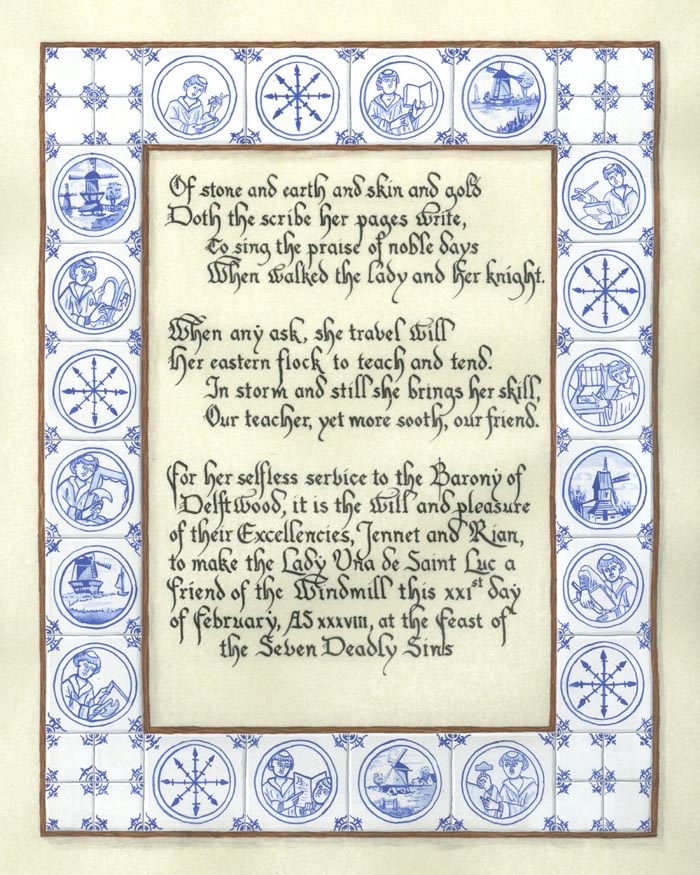 Of stone and earth and skin and gold
Doth the scribe her pages write,
To sing the praise of noble days
When walked the lady and her knight.
When any ask, she travel will
Her eastern flock to teach and tend.
In storm and still she brings her skill,
Our teacher, yet more sooth, our friend.
For her selfless service to the Barony of
Delftwood, it is the will and pleasure
of their Excellencies, Jennet and Rian,
to make the Lady Una de Saint Luc a
friend of the Windmill this xxi st day
of February, AS xxxviii, at the feast of
the Seven Deadly Sins